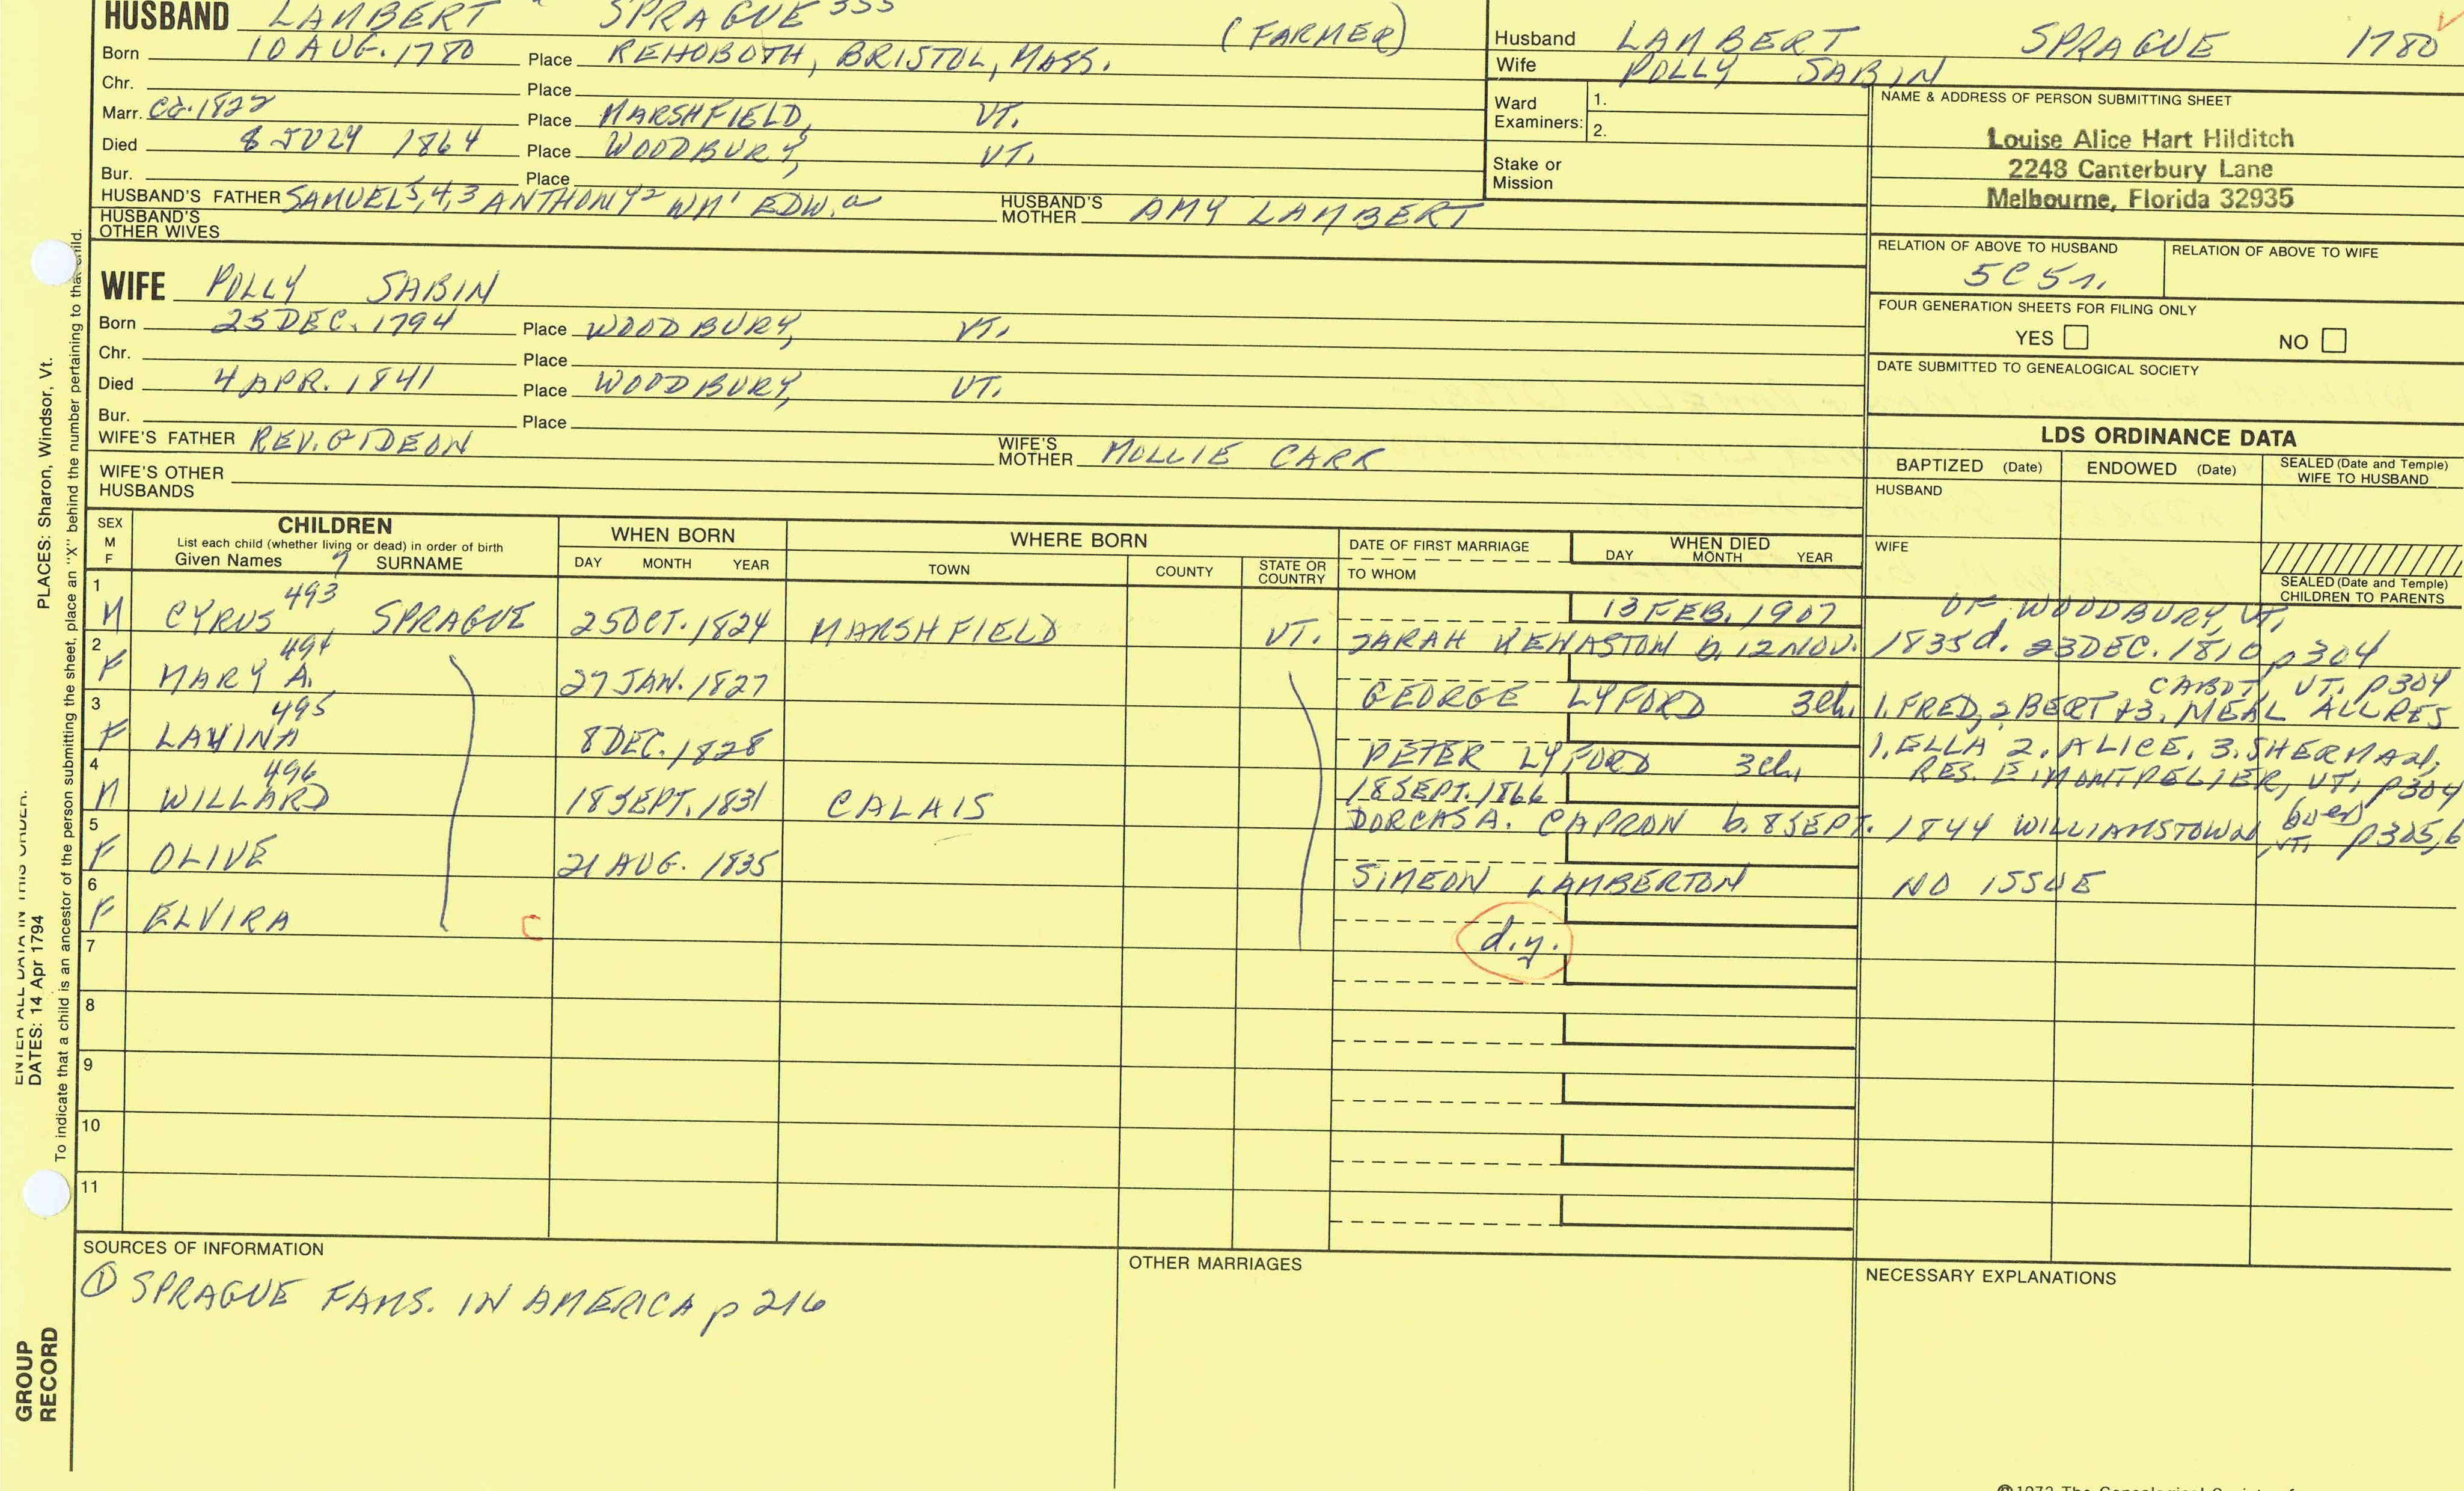 HUSBAND LAMBERT SPRAGUE 355 (FARMER)
Born 10 AUG. 1780 Place REHOBOTH, BRISTOL, MASS.
Chr. Place
Marr. Ca. 1822 Place MARSHFIELD, VT.
Died 8 JULY 1864 Place WOODBURY, VT.
Bur. Place
HUSBAND'S FATHER SAMUEL5,4,3 ANTHONY2 WM1 EDW.a HUSBAND'S MOTHER AMY LAMBERT
HUSBAND'S OTHER WIVES
Husband LAMBERT SPRAGUE 1780
Wife POLLY SABIN
Ward Examiners: 1.
2.
Stake or Mission
NAME & ADDRESS OF PERSON SUBMITTING SHEET
Louise Alice Hart Hilditch
2248 Canterbury Lane
Melbourne, Florida 32935
RELATION OF ABOVE TO HUSBAND RELATION OF ABOVE TO WIFE
5C5r.
FOUR GENERATION SHEETS FOR FILING ONLY
YES NO
DATE SUBMITTED TO GENEALOGICAL SOCIETY
WIFE POLLY SABIN
Born 25 DEC. 1794 Place WOODBURY, VT.
Chr. Place
Died 4 APR. 1841 Place WOODBURY, VT.
Bur. Place
WIFE'S FATHER REV. GIDEON WIFE'S MOTHER MOLLIE CARR
WIFE'S OTHER HUSBANDS
LDS ORDINANCE DATA
BAPTIZED (Date) ENDOWED (Date) SEALED (Date and Temple) WIFE TO HUSBAND
HUSBAND
WIFE
SEALED (Date and Temple) CHILDREN TO PARENTS
SEX M F CHILDREN WHEN BORN WHERE BORN DATE OF FIRST MARRIAGE WHEN DIED
List each child (whether living or dead) in order of birth
Given Names 7 SURNAME DAY MONTH YEAR TOWN COUNTY STATE OR COUNTRY TO WHOM DAY MONTH YEAR
1 493 13 FEB. 1907 OF WOODBURY, VT.
M CYRUS SPRAGUE 25 OCT. 1824 MARSHFIELD VT. SARAH KENASTON b. 12 NOV. 1835 d. 23 DEC. 1810 p304
2 494 CABOT, VT. p304
F MARY A. 27 JAN. 1827 GEORGE LYFORD 3ch. 1. FRED, 2 BERT +3. MEAL ALL RES
3 495
F LAVINA 8 DEC. 1828 PETER LYFORD 3ch. 1. ELLA 2. ALICE. 3. SHERMAN,
RES. E. MONTPELIER, VT. p304
4 496 18 SEPT. 1866
M WILLARD 18 SEPT. 1831 CALAIS DORCAS A. CAPRON b. 8 SEPT. 1844 WILLIAMSTOWN, VT. p305,6
5
F OLIVE 21 AUG. 1835 SIMEON LAMBERTON NO ISSUE
6
F ELVIRA d.y.
7
8
9
10
11
SOURCES OF INFORMATION
① SPRAGUE FAMS. IN AMERICA p 216
OTHER MARRIAGES
NECESSARY EXPLANATIONS
PLACES: Sharon, Windsor, Vt.
To indicate that a child is an ancestor of the person submitting the sheet, place an "X" behind the number pertaining to that child.
ENTER ALL DATA IN THIS ORDER:
DATES: 14 Apr 1794
GROUP RECORD